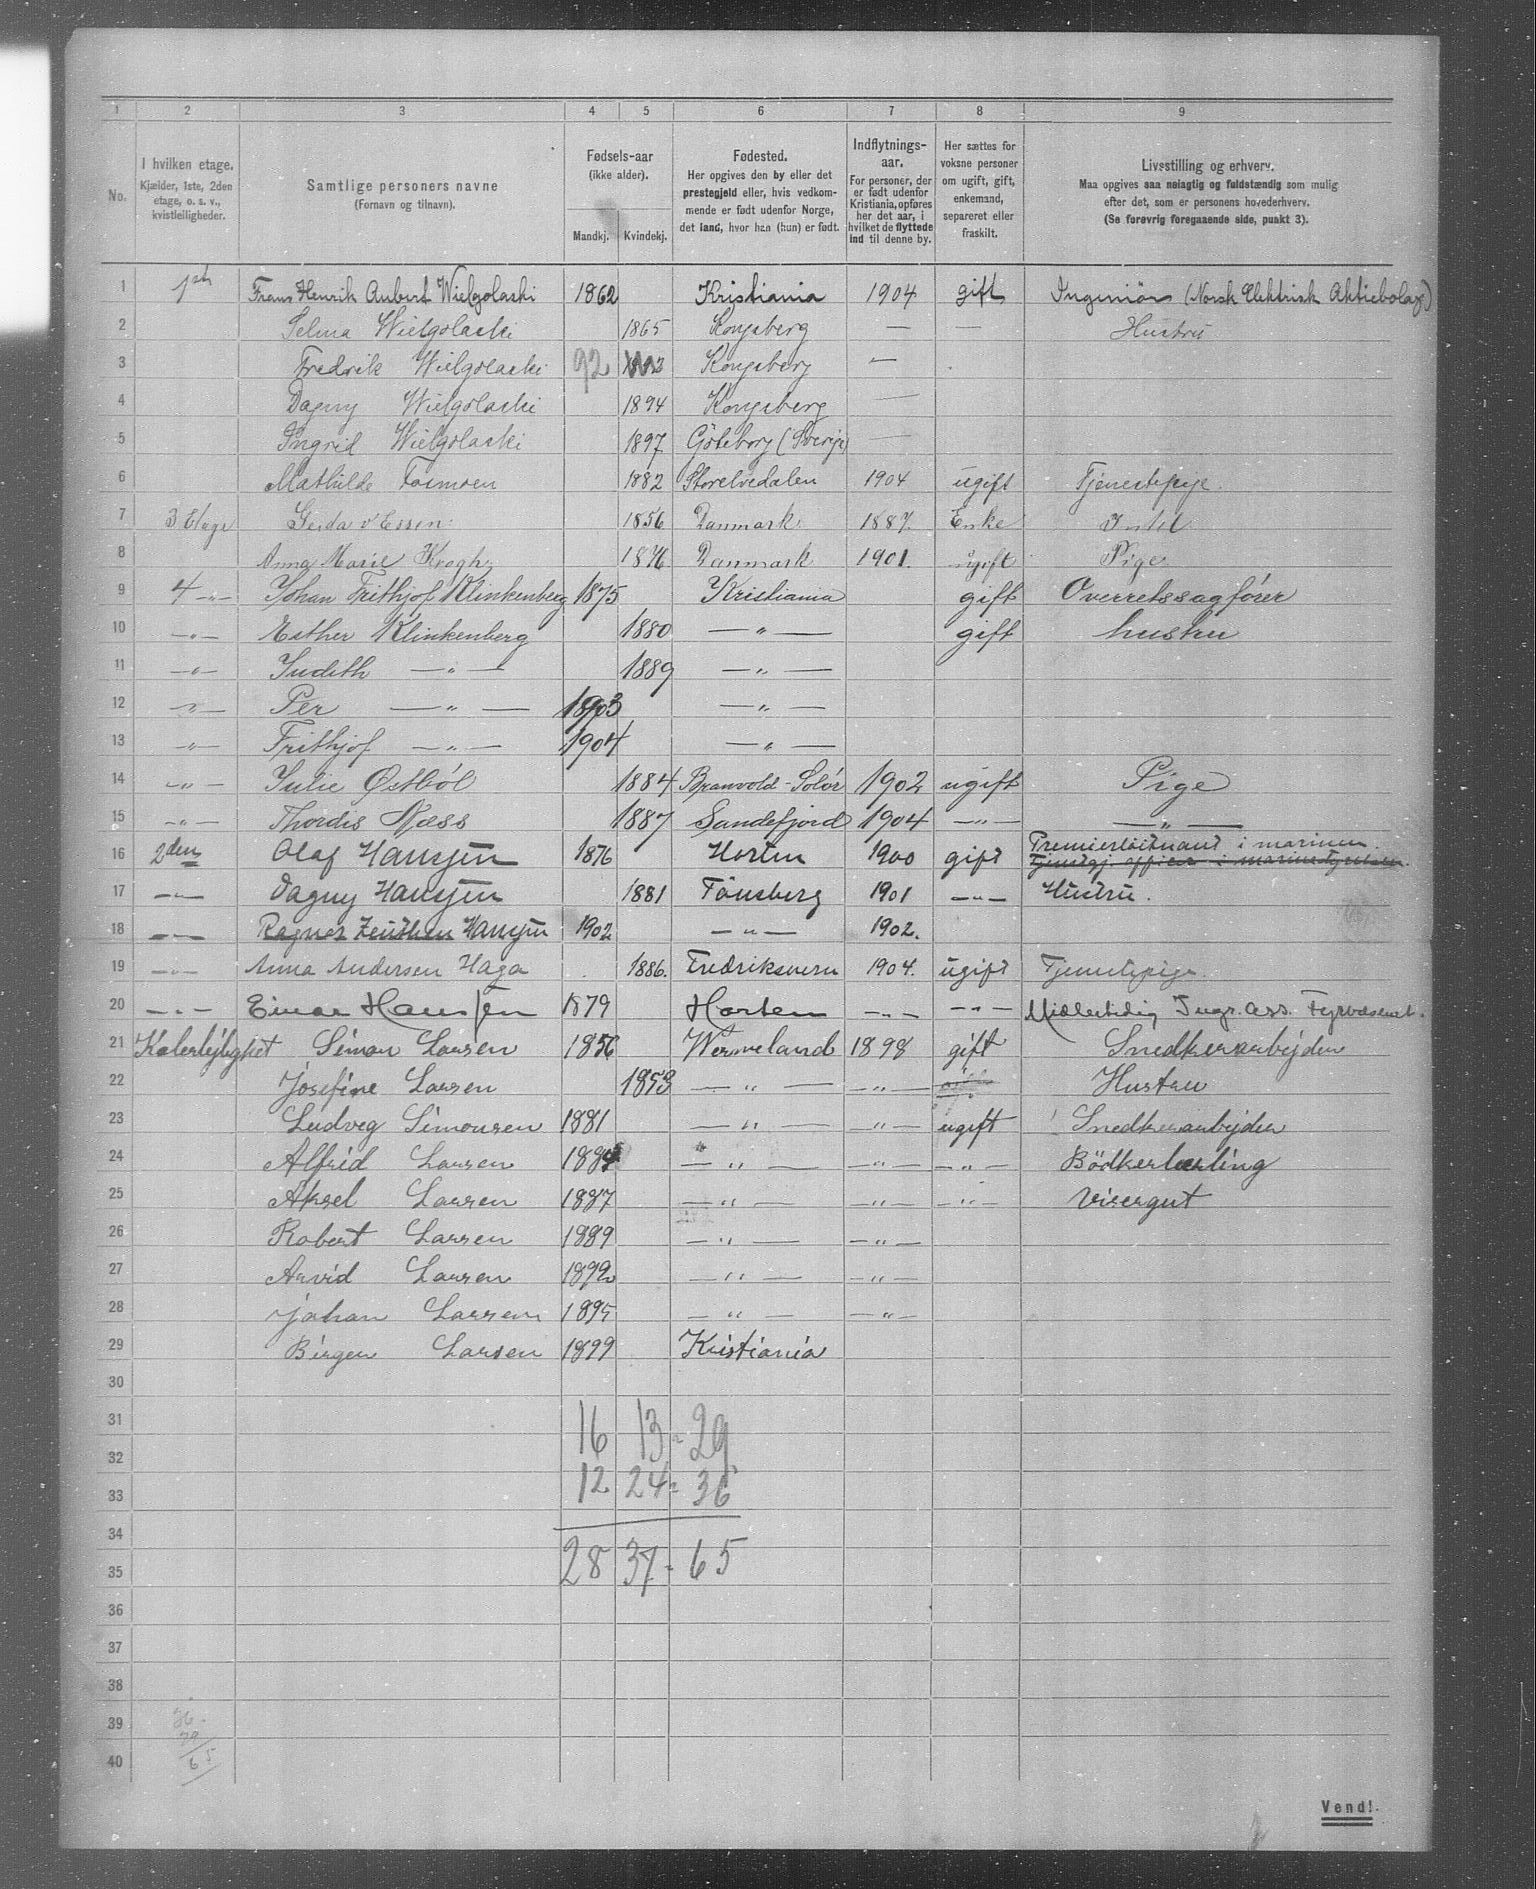 1 2 3 4 5 6 7 8 9
No.
I hvilken etage.
Kjælder, 1ste, 2den
etage, o. s. v.,
kvistleiligheder.
Samtlige personers navne
(Fornavn og tilnavn).
Fødsels-aar
(ikke alder).
Mandkj. Kvindekj.
Fødested.
Her opgives den by eller det
prestegjeld eller, hvis vedkom-
mende er født udenfor Norge,
det land, hvor han (hun) er født.
Indflytnings-
aar.
For personer, der
er født udenfor
Kristiania, opføres
her det aar, i
hvilket de flyttede
ind til denne by.
Her sættes for
voksne personer
om ugift, gift,
enkemand,
separeret eller
fraskilt.
Livsstilling og erhverv.
Maa opgives saa nøiagtig og fuldstændig som mulig
efter det, som er personens hovederhverv.
(Se forøvrig foregaaende side, punkt 3).
1 1ste Frans Henrik Aubert Wielgolaski 1862 Kristiania 1904 gift Ingeniør (Norsk Elektrisk Aktiebolag)
2 Selma Wielgolaski 1865 Kongsberg — — Hustru
3 Fredrik Wielgolaski 92 Kongsberg —
4 Dagny Wielgolaski 1894 Kongsberg —
5 Ingrid Wielgolaski 1897 Göteborg (Sverige) —
6 Mathilde Fosmoen 1882 Storelvedalen 1904 ugift Tjenestepige.
7 3 Etage Gerda v. Essen 1856 Danmark 1887. Enke
8 Anna Marie Krogh 1876 Danmark 1901. ugift Pige
9 4 —„— Johan Frithjof Klinkenberg 1875 Kristiania gift Overretssagfører
10 —„— Esther Klinkenberg 1880 —„— gift hustru
11 —„— Judith —„— 1889 —„—
12 —„— Per —„— 1903 —„—
13 —„— Frithjof —„— 1904 —„—
14 —„— Julie Østböl 1884 Branvold-Solör 1902 ugift Pige
15 —„— Thordis Næss 1887 Sandefjord 1904 —„— —„—
16 2den Olaf Hansen 1876 Horten 1900 gift Premierløitnant i marinen.
17 —„— Dagny Hansen 1881 Tönsberg 1901 —„— Hustru.
18 —„— Ragnar Zeuthen Hansen 1902 —„— 1902.
19 —„— Anna Andersen Haga 1886. Fredriksværn 1904. ugift Tjenestepige.
20 —„— Einar Hansen 1879 Horten —„— —„— Midlertidig Ingr. Ass. Fyrvæsenet.
21 Kælerlejlighet Simon Larsen 1856 Wermeland 1898 gift Snedkerarbejder
22 Josefine Larsen 1853 —„— —„— Hustru
23 Ludveg Simonsen 1881 —„— —„— ugift Snedkerarbejder
24 Alfrid Larsen 1884 —„— —„— —„— Bödkerlærling
25 Aksel Larsen 1887 —„— —„— —„— Visergut
26 Robert Larsen 1889 —„— —„—
27 Arvid Larsen 1892 —„— —„—
28 Johan Larsen 1895 —„— —„—
29 Birger Larsen 1899 Kristiania
30
31 16 13 = 29
32
33 12 24 = 36
34
35 28 37 - 65
36
37
38
39 36
29
40 65
Vend!